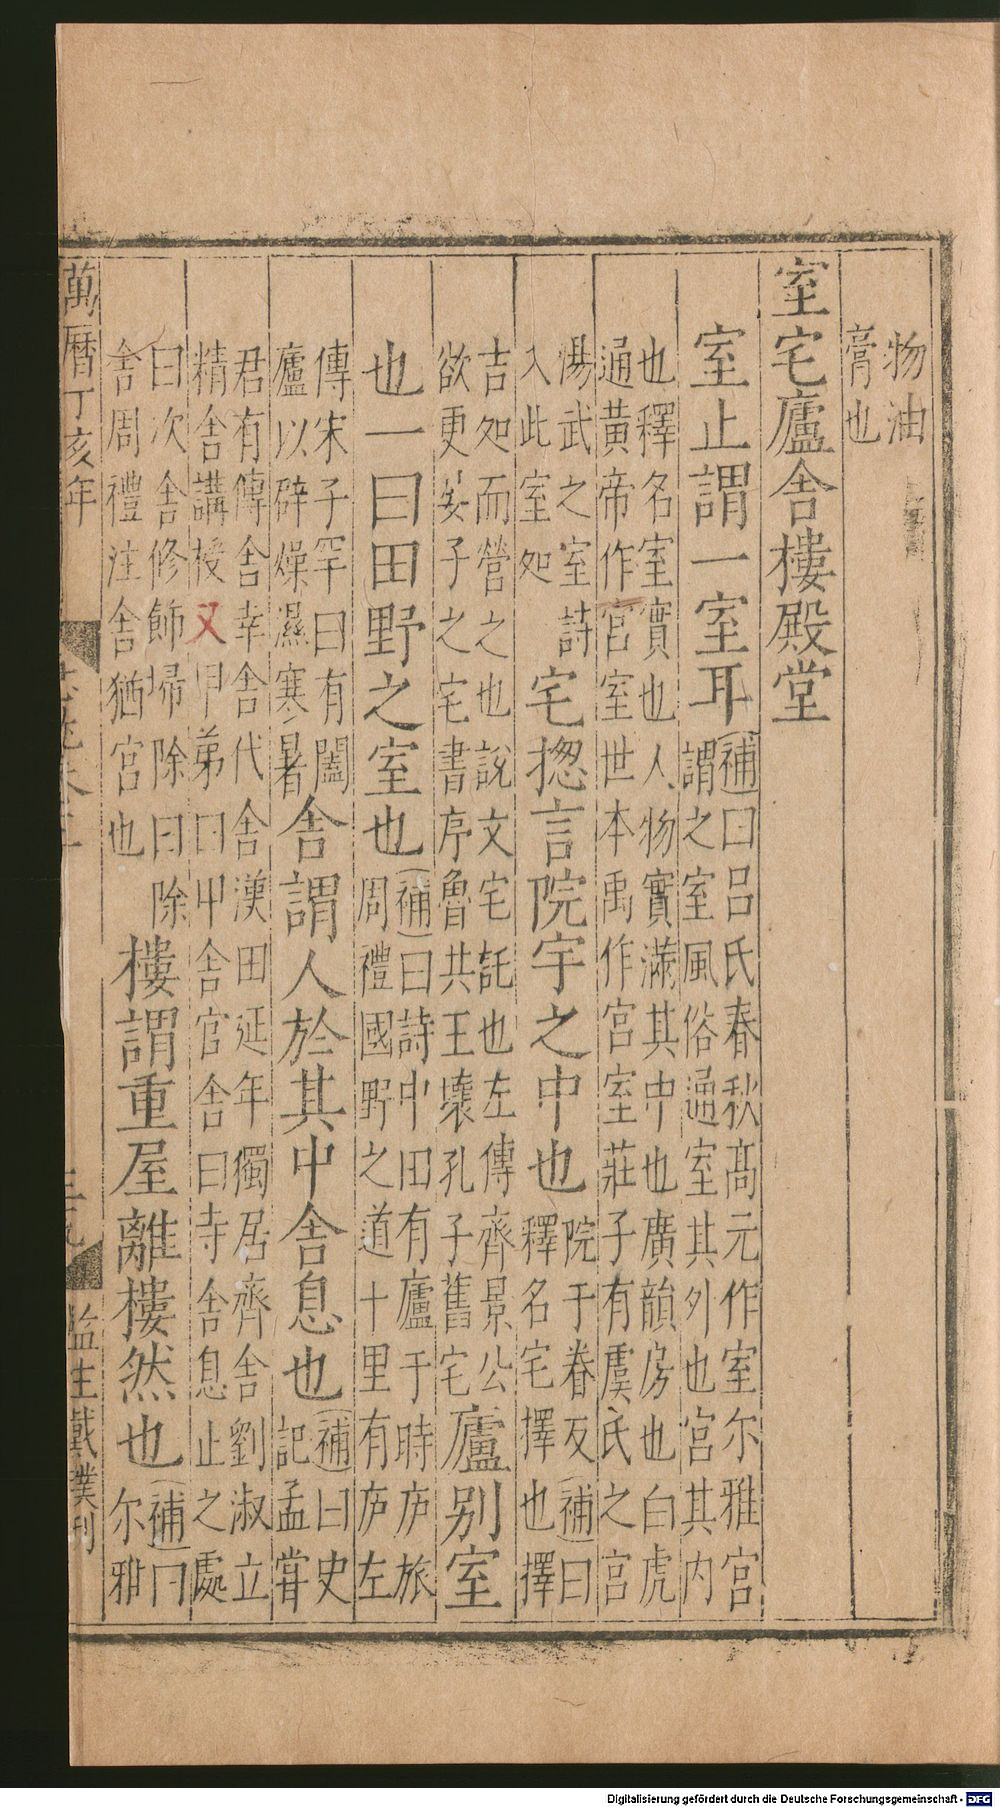 物油
膏也
室宅廬舍樓殿堂
室止謂一室耳(補)曰呂氏春秋髙元作室尔雅宫
謂之室風俗通室其外也宫其内
也釋名室實也人物實滿其中也廣韻房也白虎
通黄帝作宫室世本禹作宫室莊子有虞氏之宫
湯武之室詩
入此室処
宅揔言院宇之中也院于眷反(補)曰
釋名宅擇也擇
吉処而營之也說文宅託也左傳齊景公
欲更晏子之宅書序魯共王壞孔子舊宅
廬别室
也一曰田野之室也(補)曰詩中田有廬于時庐旅
周禮國野之道十里有庐左
傳宋子罕曰有闔
廬以辟燥濕寒暑
舍謂人於其中舍息也(補)曰史
記孟甞
君有傳舍幸舍代舍漢田延年獨居齊舍劉淑立
精舍講授又甲弟曰甲舍官舍曰寺舍息止之處
曰次舍修飾埽除曰除
舍周禮注舍猶宫也
樓謂重屋離樓然也(補)曰
尔雅
萬曆丁亥年
監生戴撲刊
Digitalisierung gefördert durch die Deutsche Forschungsgemeinschaft - DFG